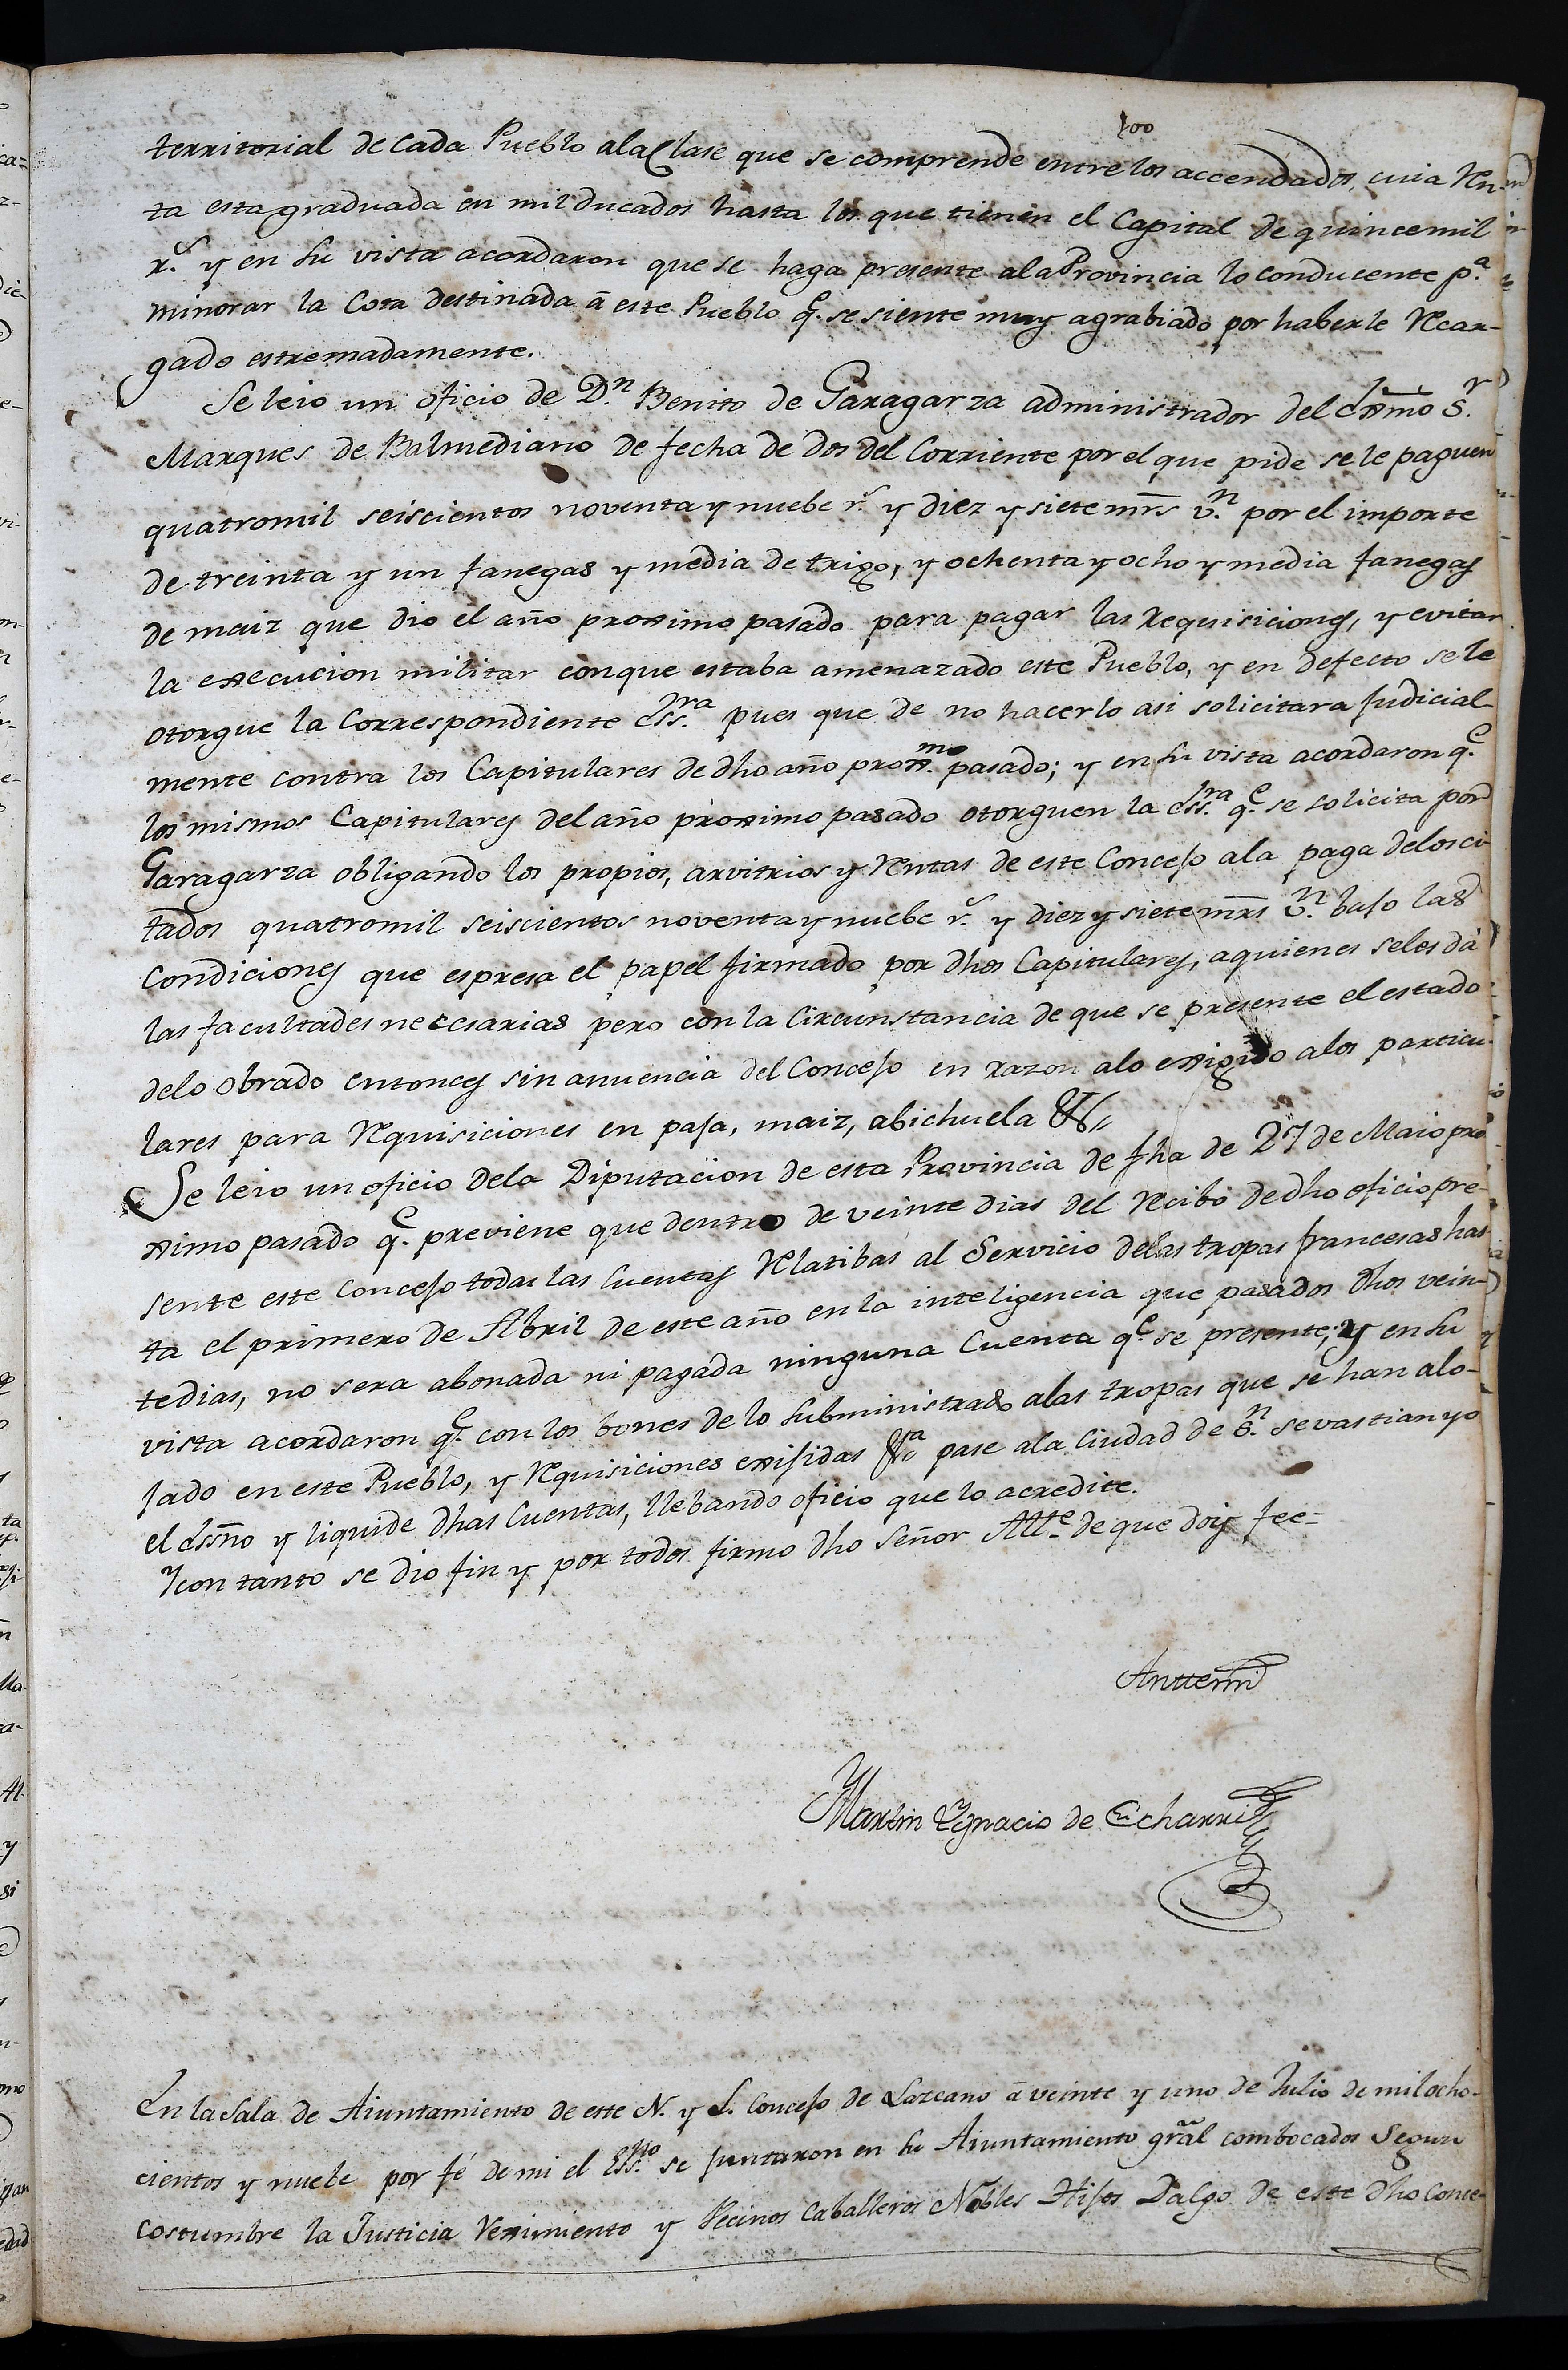 100
territorial de cada Pueblo ala Clase que se comprende entre los accendados, cuia Ren-
ta esta graduada en mil ducados hasta los que tienen el Capital de quincemil
r.s y en su vista acordaron que se haga presente ala Provincia lo conducente p.a
minorar la Cota destinada â este Pueblo q.e se siente muy agrabiado por haberle Recar-
gado estremadamente.
Se leio un oficio de D.n Benito de Garagarza administrador del Exmo S.r
Marques de Balmediano de fecha de dos del Corriente por el que pide se le paguen
quatromil seiscientos noventa y nuebe r.s y diez y siete mrs v.n por el importe
de treinta y un fanegas y media de trigo, y ochenta y ocho y media fanegas
de maiz que dio el año proximo pasado para pagar las Requisiciones, y evitar
la execucion militar conque estaba amenazado este Pueblo, y en defecto se le
otorgue la Correspondiente Ess.ra pues que de no hacerlo asi solicitara Judicial-
mente contra los Capitulares de dho año prox.mo pasado; y en su vista acordaron q.e
los mismos Capitulares del año proximo pasado otorguen la Ess.ra q.e se solicita por
Garagarza obligando los propios, arvitrios y Rentas de este Concejo ala paga delos ci-
tados quatromil seiscientos noventa y nuebe r.s y diez y siete mrs v.n bajo las
Condiciones que espresa el papel firmado por dhos Capitulares, aquienes seles dá
las facultades necesarias pero con la Circunstancia de que se presente el estado
delo obrado entonces sin anuencia del Concejo en razon alo exigido alos particu-
lares para Requisiciones en paja, maiz, abichuela &.
Se leio un oficio dela Diputacion de esta Provincia de fha de 27 de Maio pro-
ximo pasado q.e previene que dentro de veinte dias del Recibo de dho oficio pre-
sente este Concejo todas las Cuentas Relatibas al Servicio delas tropas francesas has-
ta el primero de Abril de este año en la inteligencia que pasados dhos vein-
tedias, no sera abonada ni pagada ninguna Cuenta q.e se presente; y en su
vista acordaron q.e con los bones de lo subministrado alas tropas que se han alo-
jado en este Pueblo, y Requisiciones exijidas &.a pase ala Ciudad de S.n Sevastian yo
el Essno y liquide dhas Cuentas, llebando oficio que lo acredite.
Y con tanto se dio fin y por todos firmo dho Señor Alt.e de que doiy fee=
Anttemi
Martin Ygnacio de Echarri
En la Sala de Aiuntamiento de este N. y L. Concejo de Lazcano â veinte y uno de Julio de mil ocho-
cientos y nuebe por fé de mi el Ess.no se juntaron en su Aiuntamiento grâl combocados Segun
costumbre la Justicia Reximiento y Vecinos Caballeros Nobles Hijos Dalgo de este dho Conce-